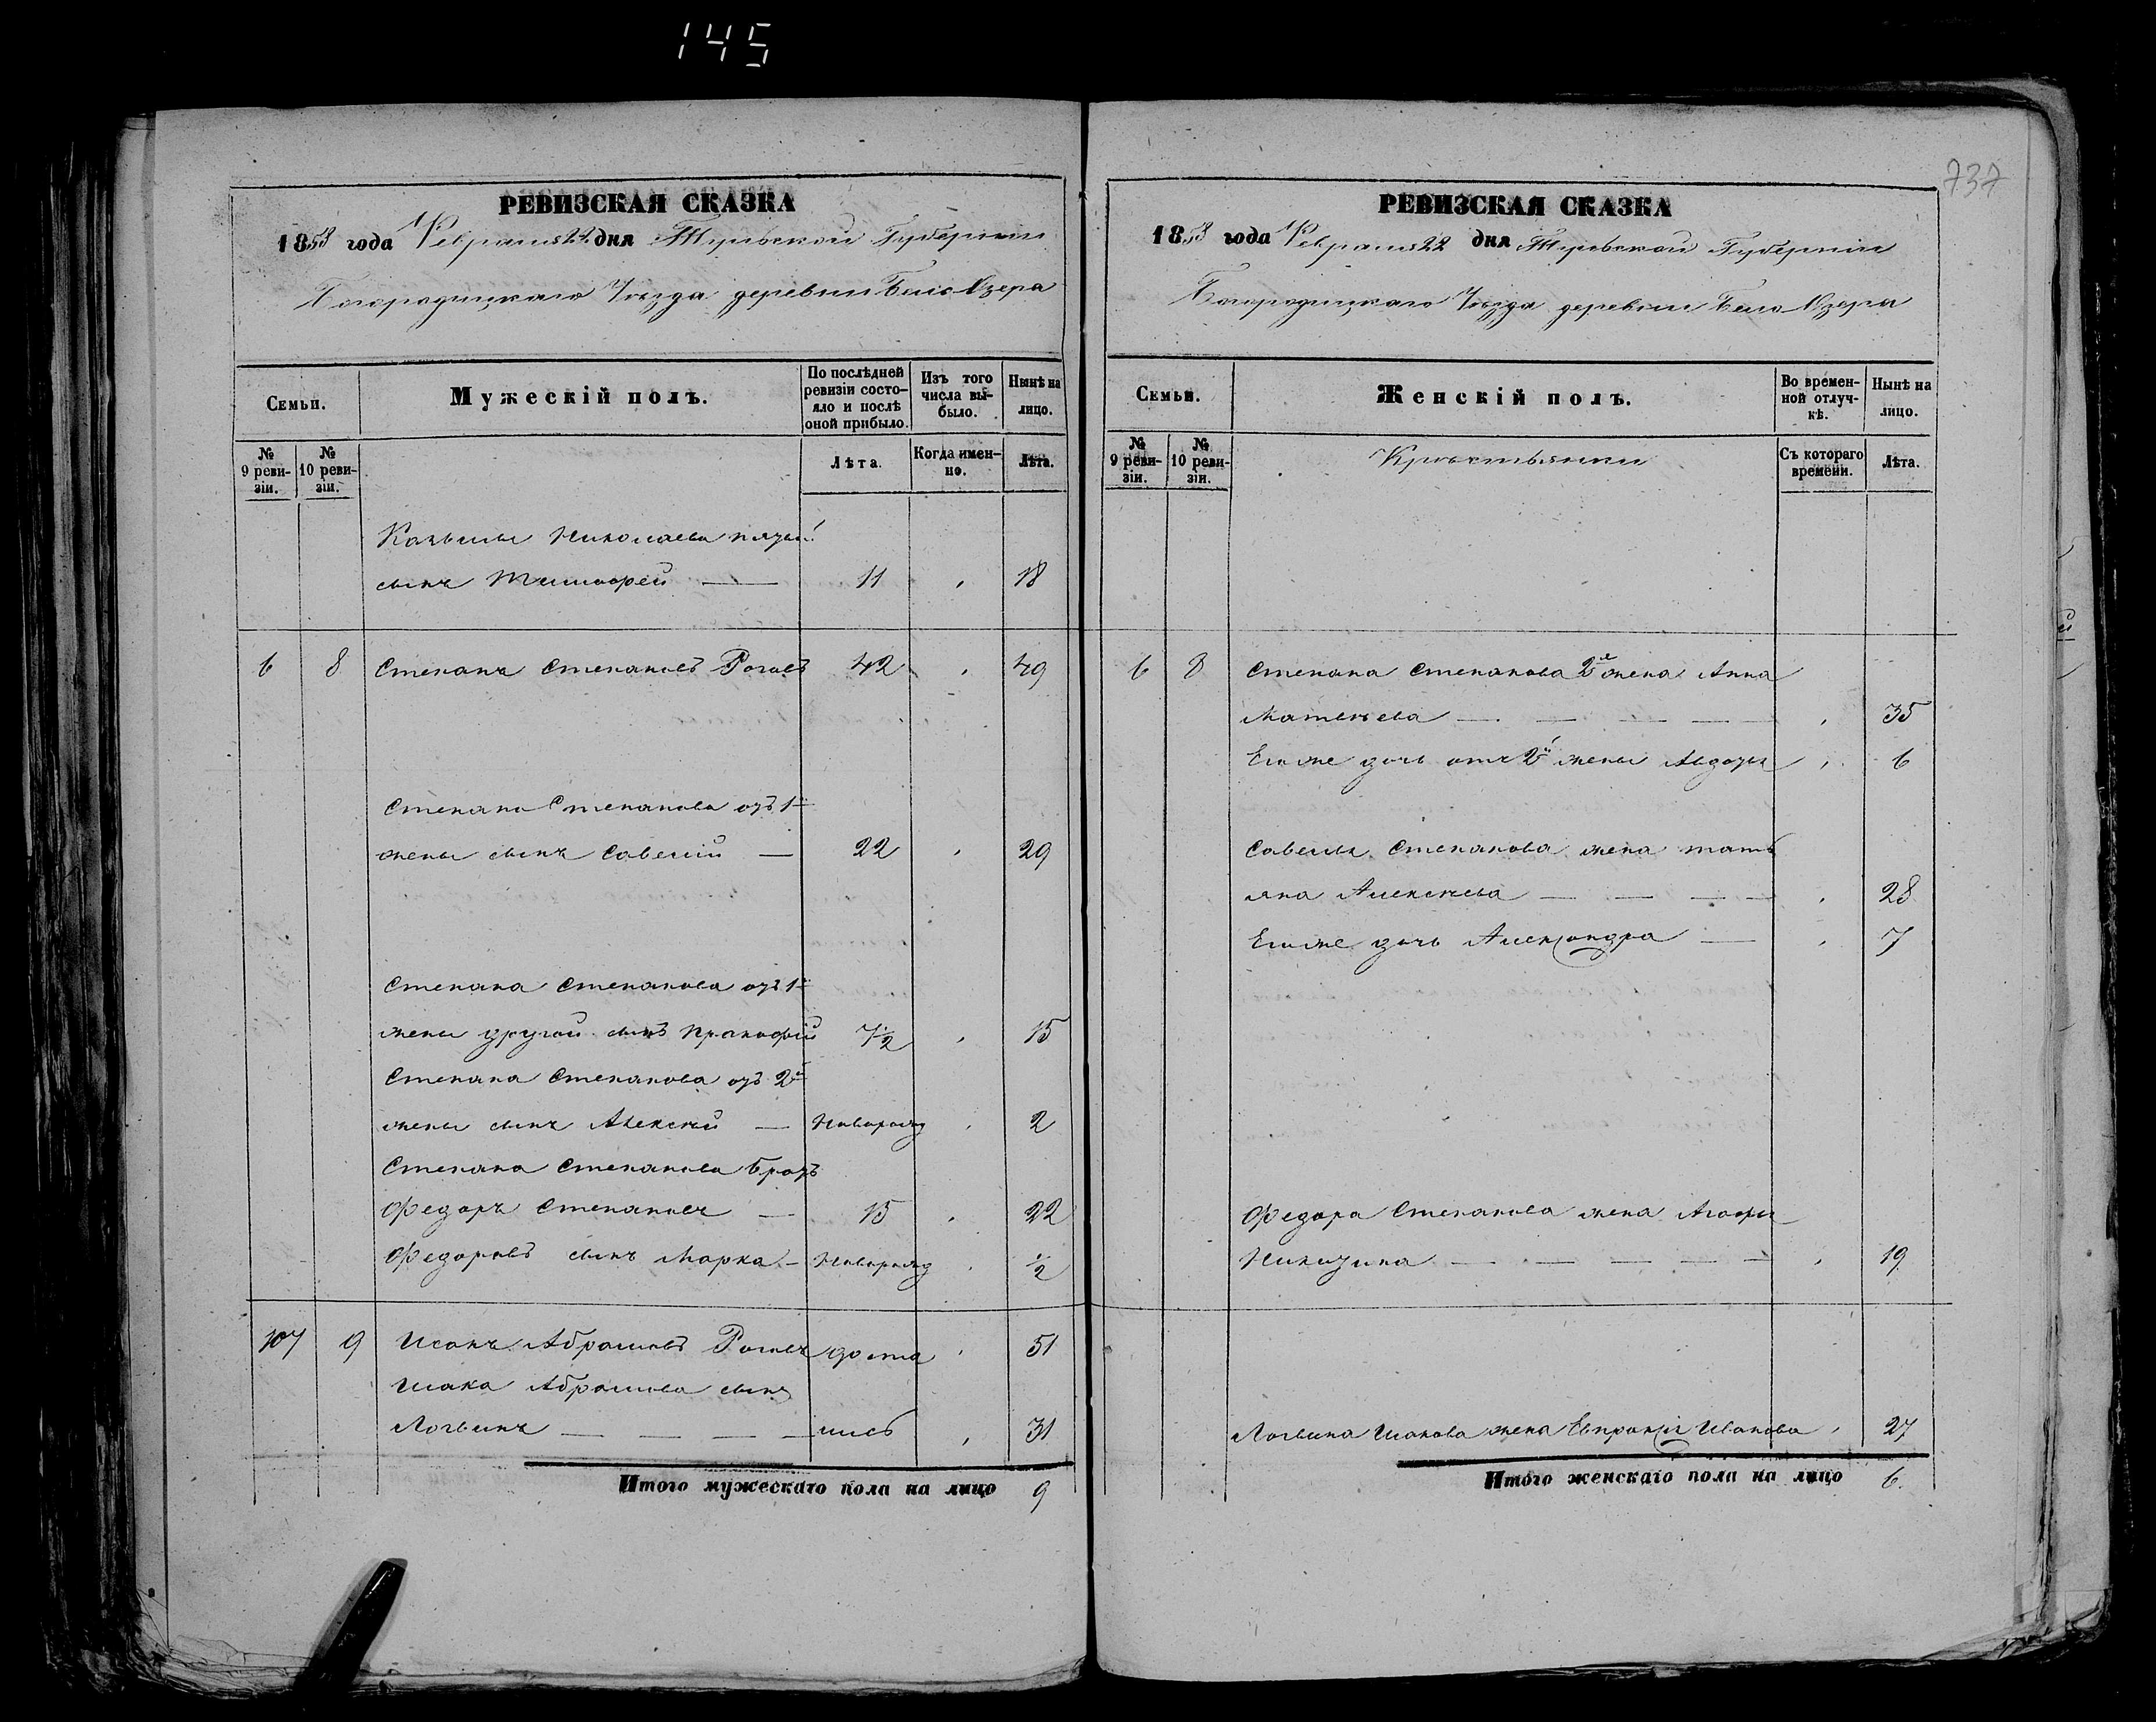 145
737
РЕВИЗСКАЯ СКАЗКА
1858 года Февраля 22 дня Тульской Губернiи
Богородицкаго Уѣзда деревни Бело Озера
Семьи.
Мужескiй полъ.
По послѣдней ревизiи состояло и послѣ оной прибыло.
Изъ того числа выбыло.
Нынѣ на лицо.
№ 9 ревизiи.
№ 10 ревизiи.
Лѣта.
Когда именно.
Лѣта.
сынъ Тимофей — 11 18
6 8 Степанъ Степановъ Роговъ 42 49
Степана Степанова отъ 1й
жены сынъ Савелiй — 22 29
Степана Степанова отъ 1й
жены другой сынъ Прокофiй 7½ 15
Степана Степанова отъ 2й
жены сынъ Алексѣй — Новорожд 2
Степана Степанова братъ
Федоръ Степановъ — 15 22
Федоровъ сынъ Марка — Новорожд ½
107 9 Исакъ Абрамовъ Роговъ доста 51
Исака Абрамова сынъ
Логвинъ — — — — лись 31
Итого мужескаго пола на лицо 9
РЕВИЗСКАЯ СКАЗКА
1858 года Февраля 22 дня Тульской Губернiи
Богородицкаго Уѣзда деревни Бело Озера
Семьи.
Женскiй полъ.
Во временной отлучкѣ.
Нынѣ на лицо.
№ 9 ревизiи.
№ 10 ревизiи.
Крестьянки
Съ котораго времени.
Лѣта.
6 8 Степана Степанова 2я жена Анна
Матвѣева — — — — 35
Его же дочь отъ 2й жены Авдотья 6
Савелья Степанова жена Тать
яна Алексѣева — — — — 28
Его же дочь Александра — 7
Федора Степанова жена Агафья
Никитина — — — — — 19
Логвина Исакова жена Евпраксiя Иванова 27
Итого женскаго пола на лицо 6.